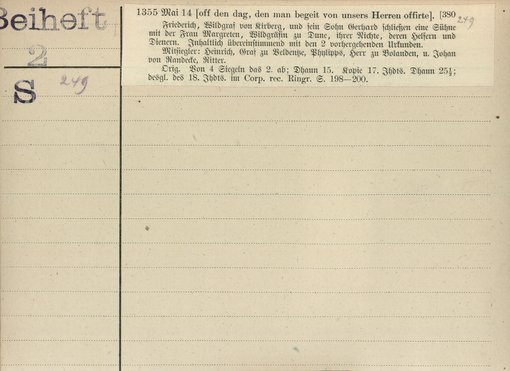 Beiheft
2
S 249
1355 Mai 14 [off den dag, den man begeit von unsers Herren offirte]. [380 249
Friederich, Wildgraf von Kirberg, und sein Sohn Gerhard schließen eine Sühne
mit der Frau Margreten, Wildgräfin zu Dune, ihrer Nichte, deren Helfern und
Dienern. Inhaltlich übereinstimmend mit den 2 vorhergehenden Urkunden.
Mitsiegler: Heinrich, Graf zu Veldentze, Phylipps, Herr zu Bolanden, u. Johan
von Randecke, Ritter.
Orig. Von 4 Siegeln das 2. ab; Dhaun 15. Kopie 17. Jhdts. Dhaun 25½;
desgl. des 18. Jhdts. im Corp. rec. Ringr. S. 198—200.